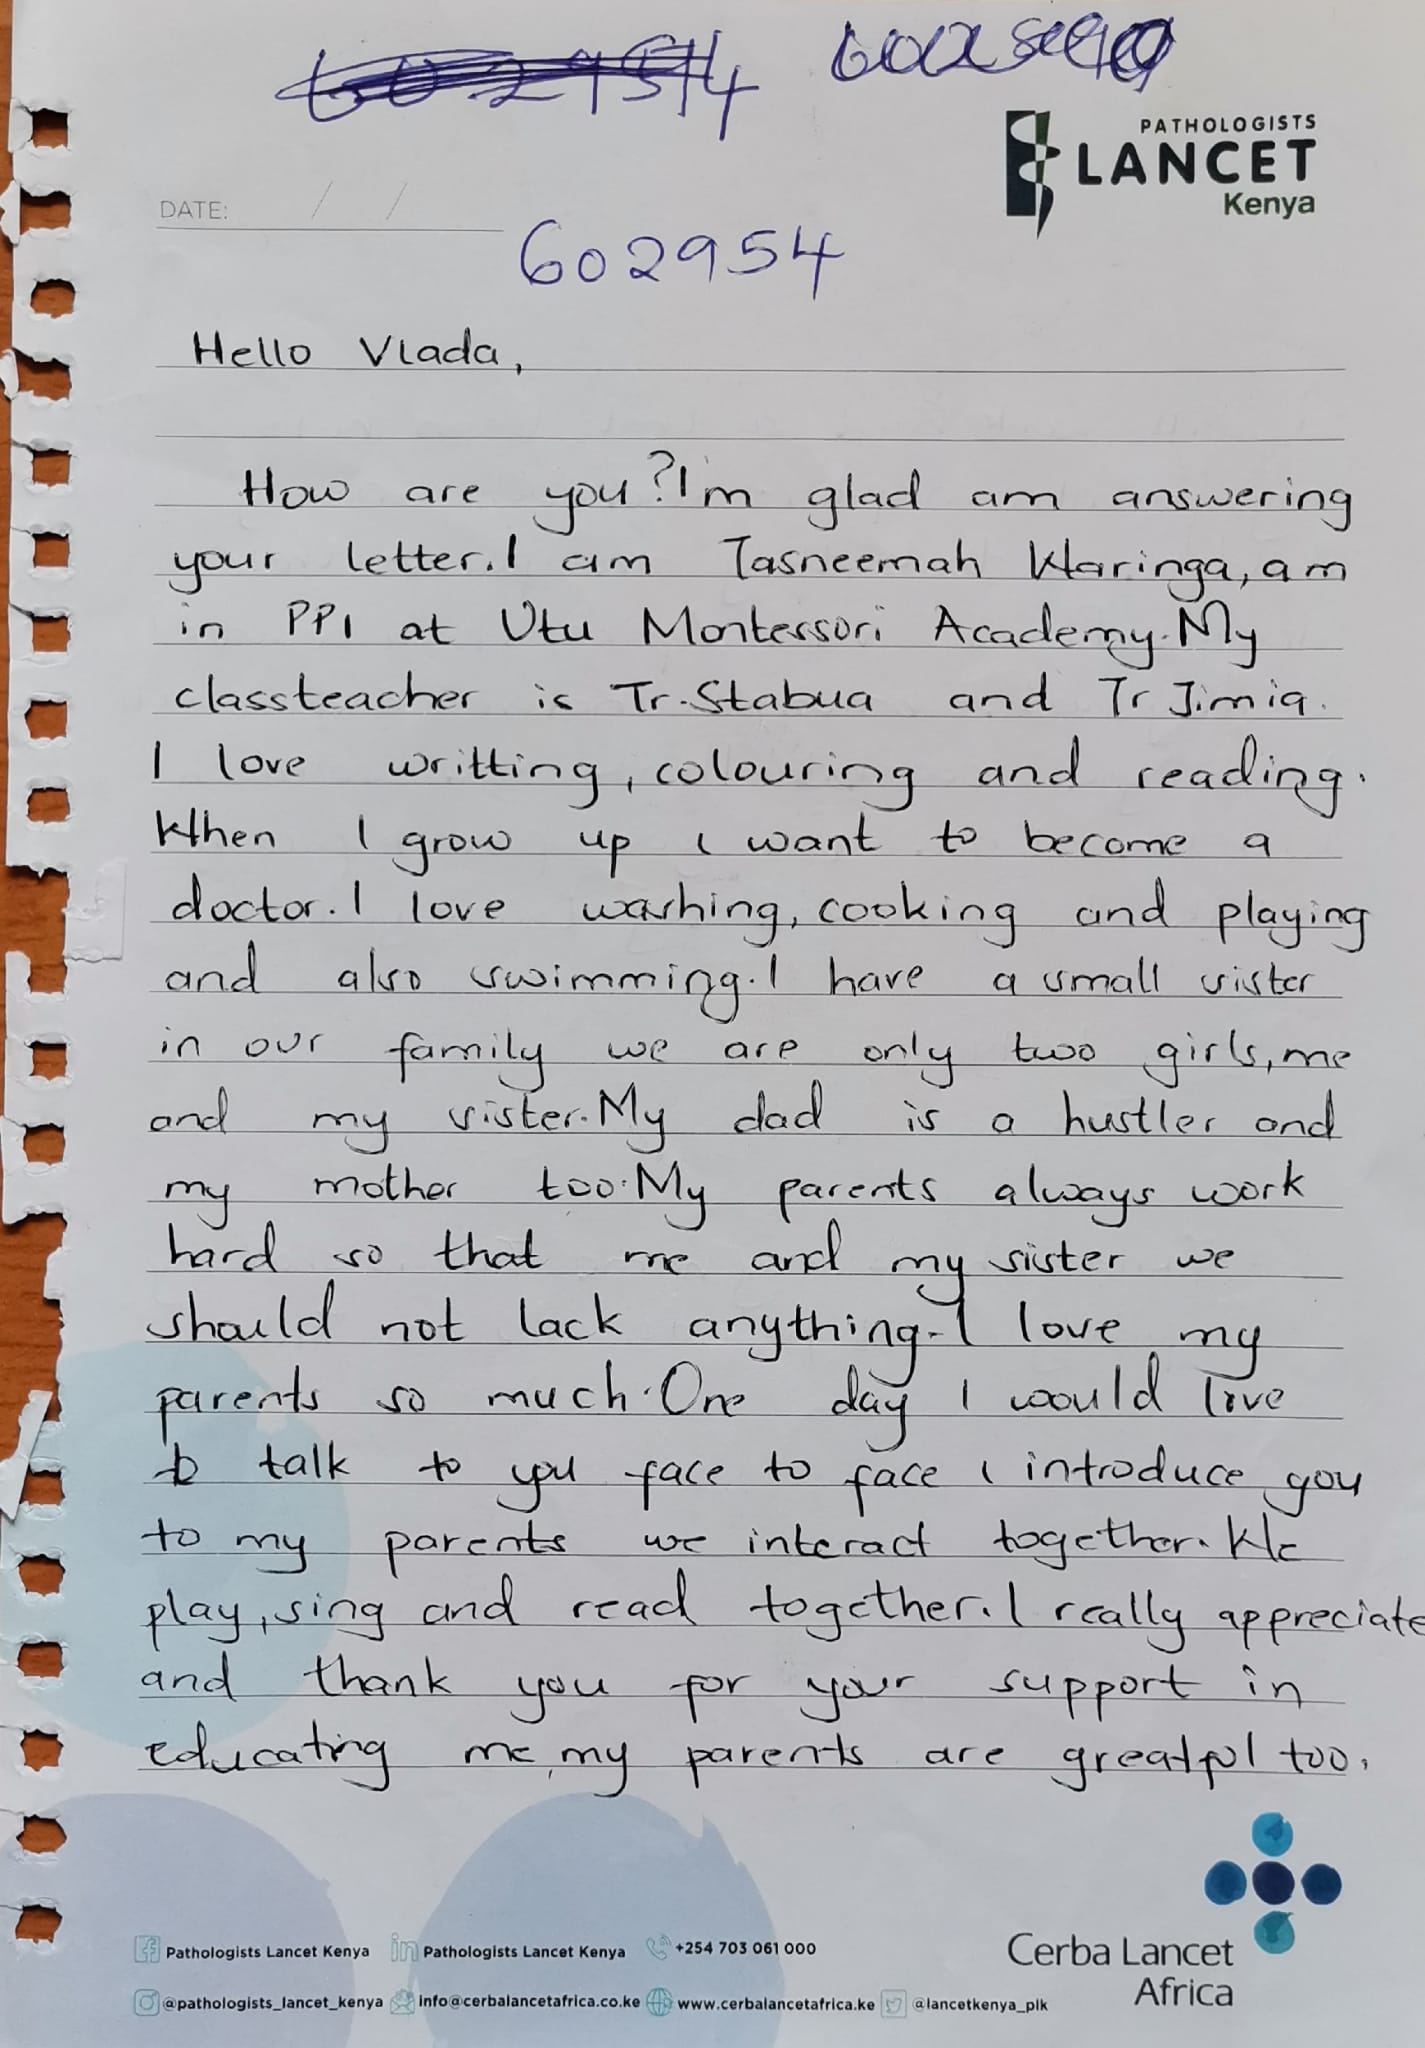 602954
PATHOLOGISTS
LANCET
Kenya
DATE: / /
602954
Hello Vlada,
How are you? I'm glad am answering
your letter. I am Tasneemah Waringa, am
in PP1 at Utu Montessori Academy. My
classteacher is Tr. Stabua and Tr Jimia.
I love writting, colouring and reading.
When I grow up i want to become a
doctor. I love washing, cooking and playing
and also swimming. I have a small sister
in our family we are only two girls, me
and my sister. My dad is a hustler and
my mother too. My parents always work
hard so that me and my sister we
should not lack anything. I love my
parents so much. One day I would love
to talk to you face to face i introduce you
to my parents we interact together. We
play, sing and read together. I really appreciate
and thank you for your support in
educating me, my parents are greatful too.
Pathologists Lancet Kenya Pathologists Lancet Kenya +254 703 061 000
@pathologists_lancet_kenya info@cerbalancetafrica.co.ke www.cerbalancetafrica.ke @lancetkenya_plk
Cerba Lancet
Africa